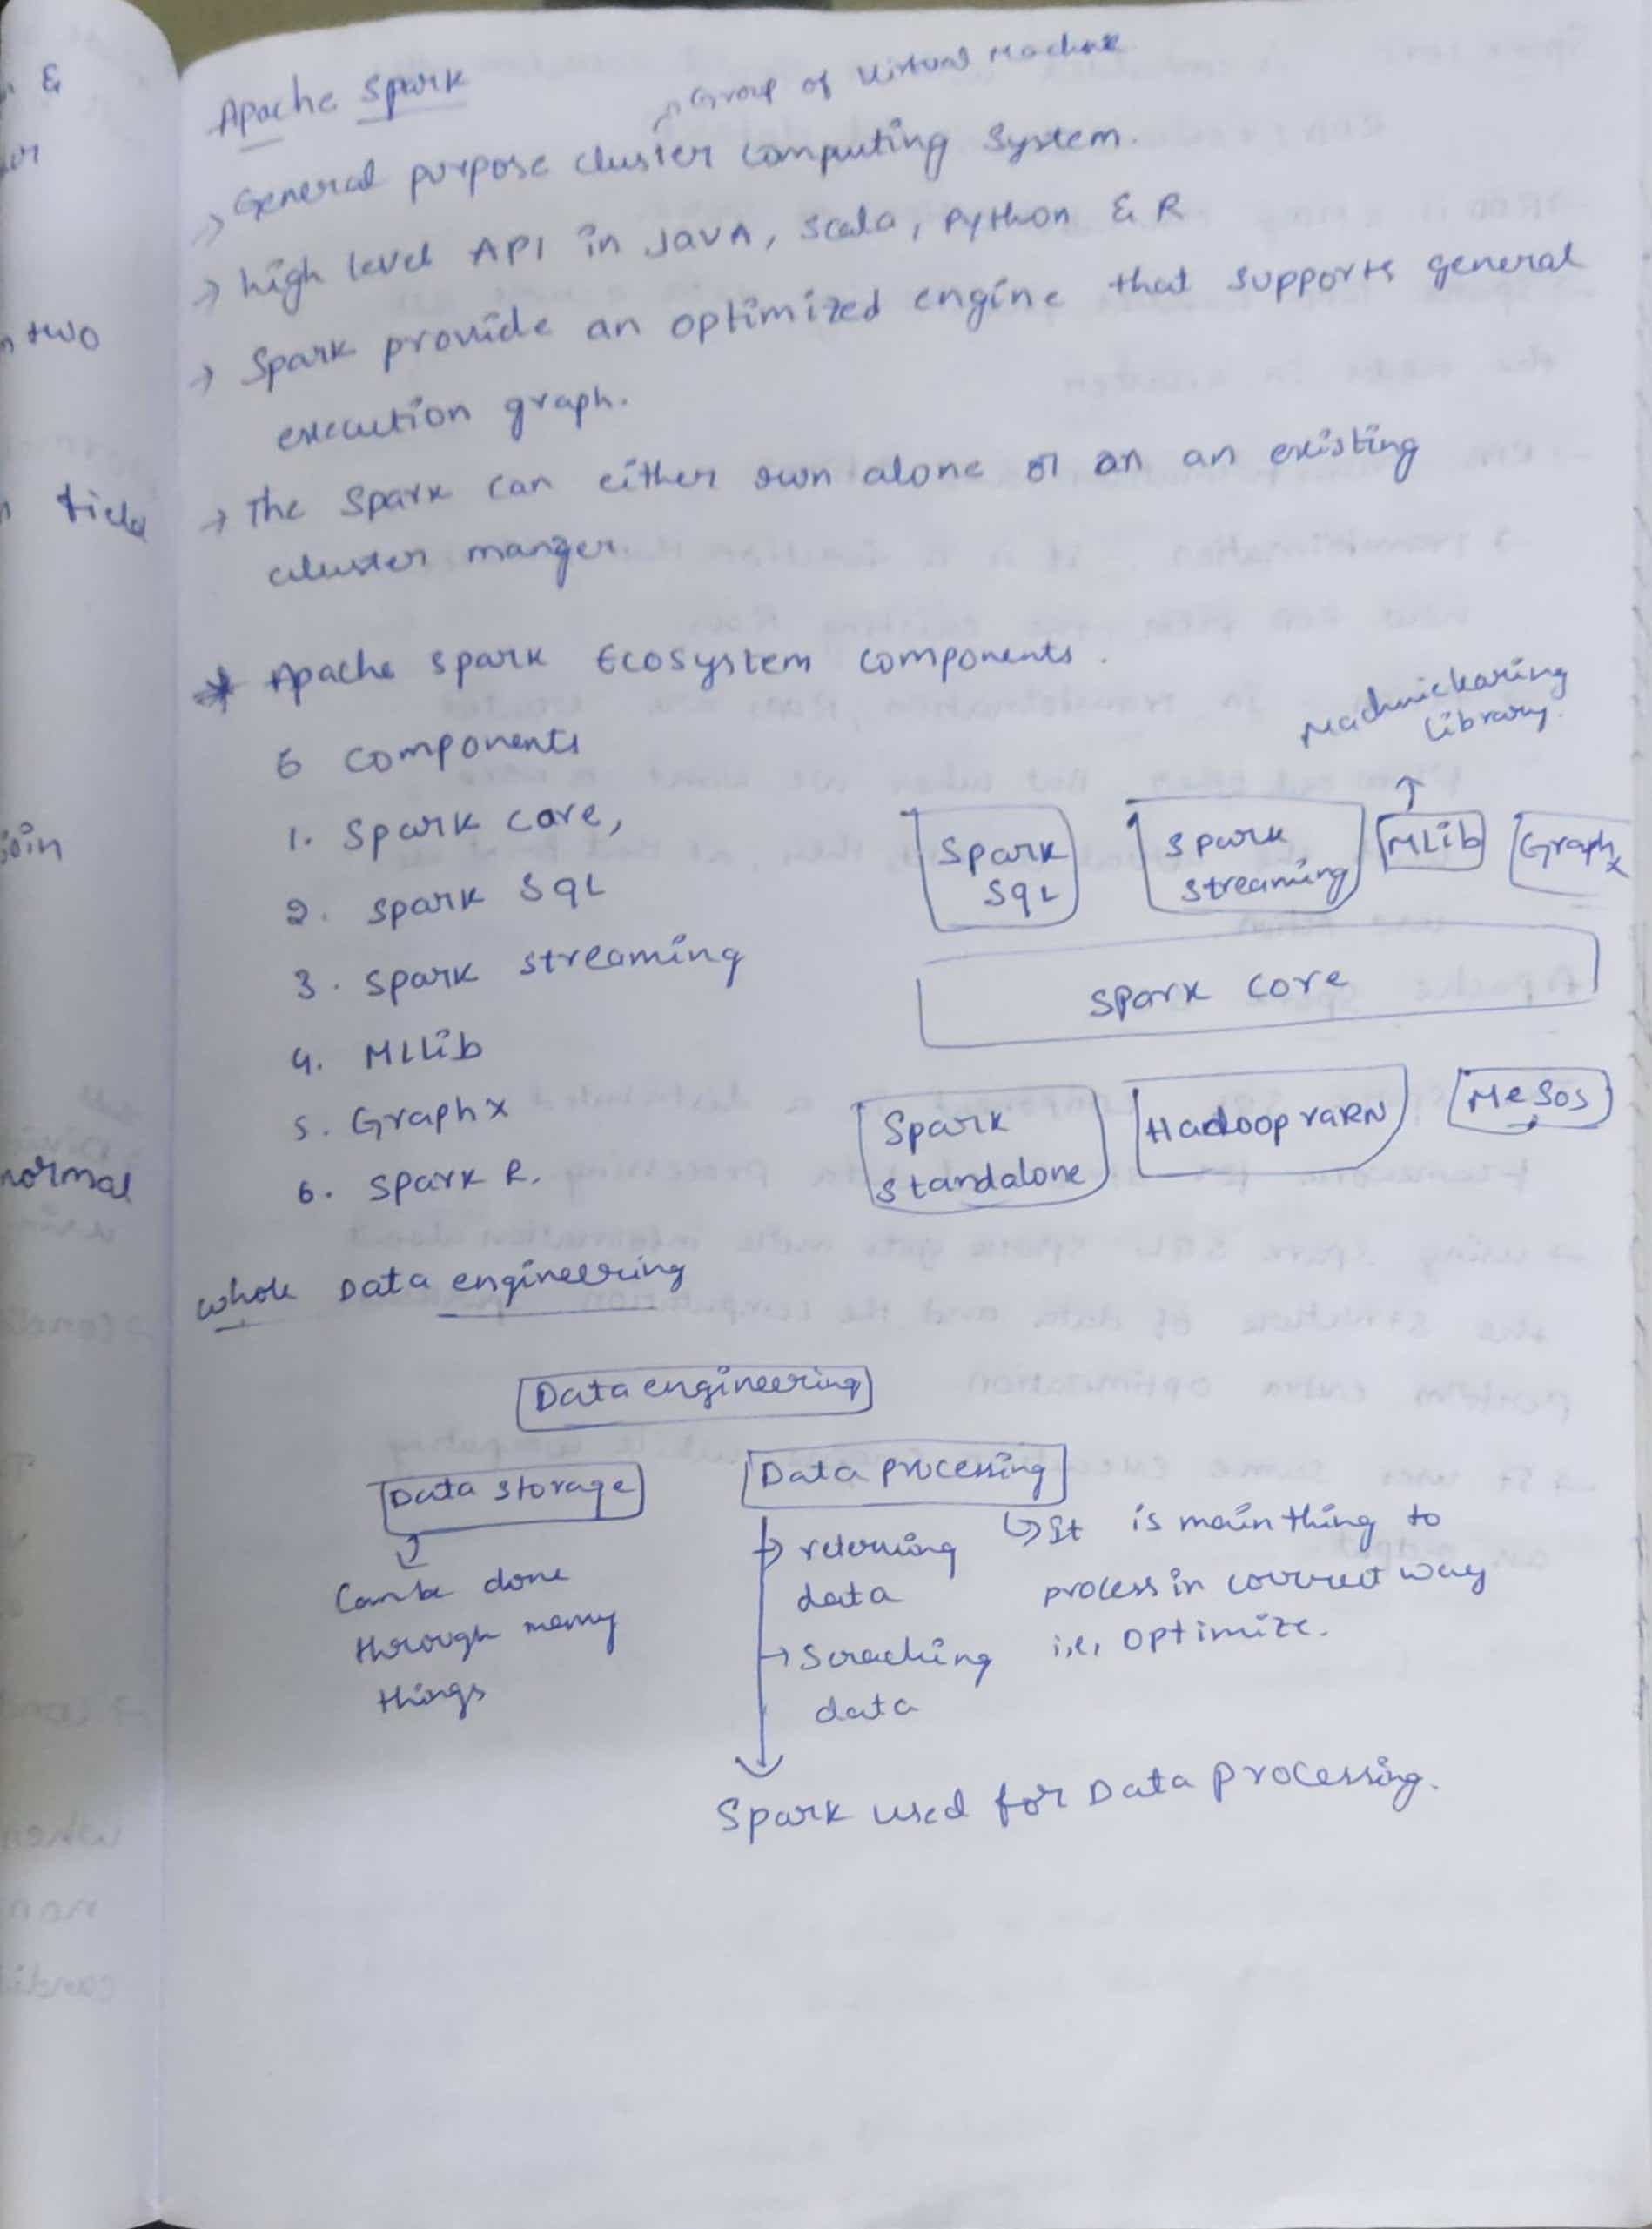 Apache Spark
Group of Virtual Machine
→ General purpose cluster computing System.
→ high level API in JAVA, Scala, Python & R
→ Spark provide an optimized engine that supports general
execution graph.
→ The Spark can either own alone or on an existing
cluster manger.
* Apache spark Ecosystem components.
6 components
1. Spark core,
2. spark SQL
3. spark streaming
4. MLlib
5. Graphx
6. spark R.
Machnicharing
Library.
↑
Spark
SQL
spark
streaming
MLib
Graphx
spark core
Spark
standalone
Hadoop YARN
Mesos
whole Data engineering
Data engineering
Data storage
Can be done
through many
things
Data processing
→ returning
data
→ Seraching
data
↳ It is main thing to
process in correct way
i.e, optimize.
Spark used for Data processing.
&
two
join
normal